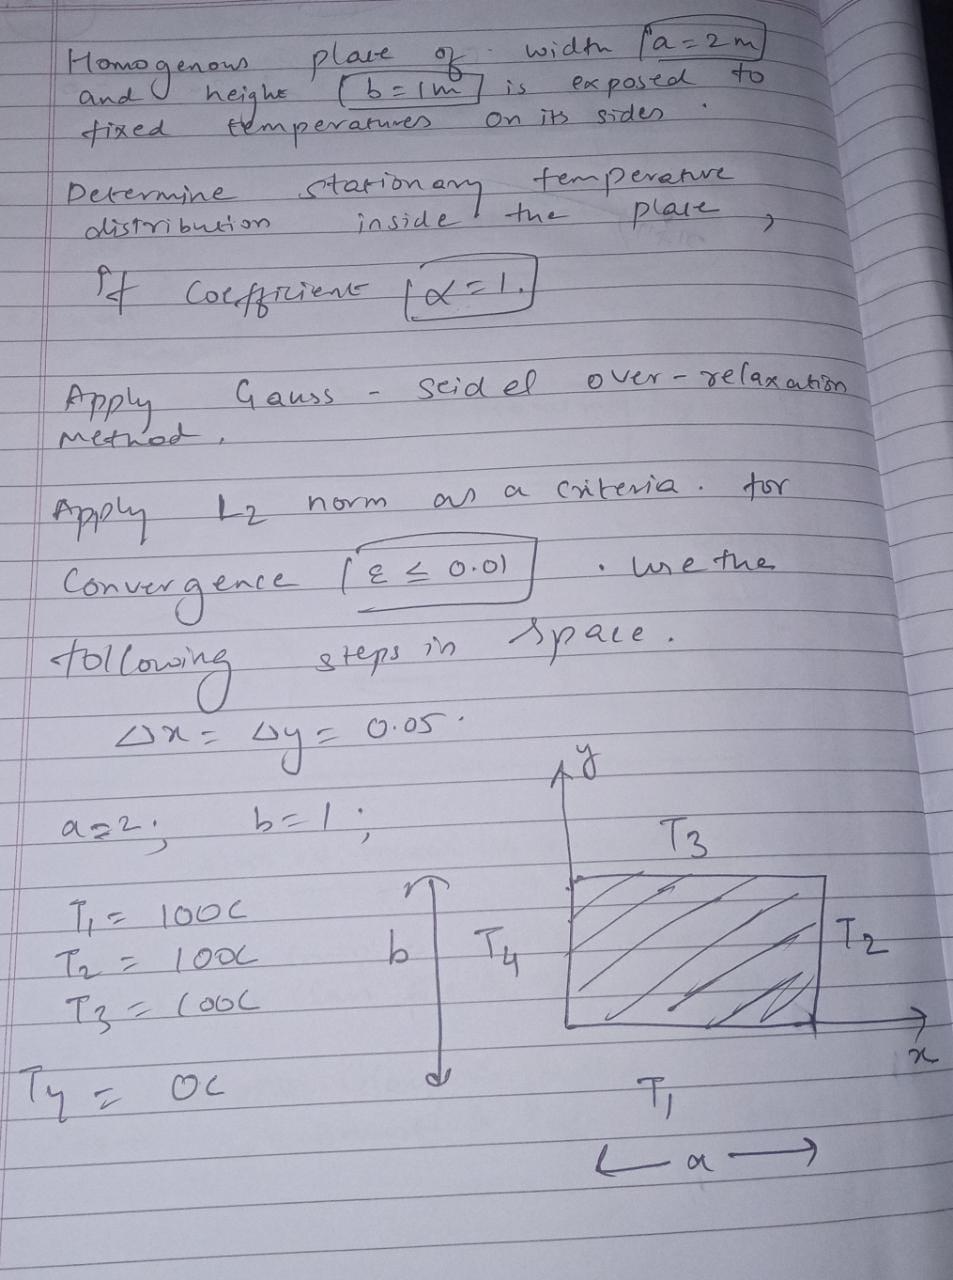 Homogenous plate of width a = 2m
and height b = 1m is exposed to
fixed temperatures on its sides.
Determine stationary temperature
distribution inside the plate,
If Coefficient α = 1.
Apply Gauss - Seidel over - relaxation
Method.
Apply L2 norm as a criteria. for
Convergence ε ≤ 0.01. use the
following steps in space.
Δx = Δy = 0.05.
a = 2; b = 1;
y
T3
T1 = 100C
T2 = 100C
b T4 T2
T3 = 100C
x
T4 = 0C
T1
a